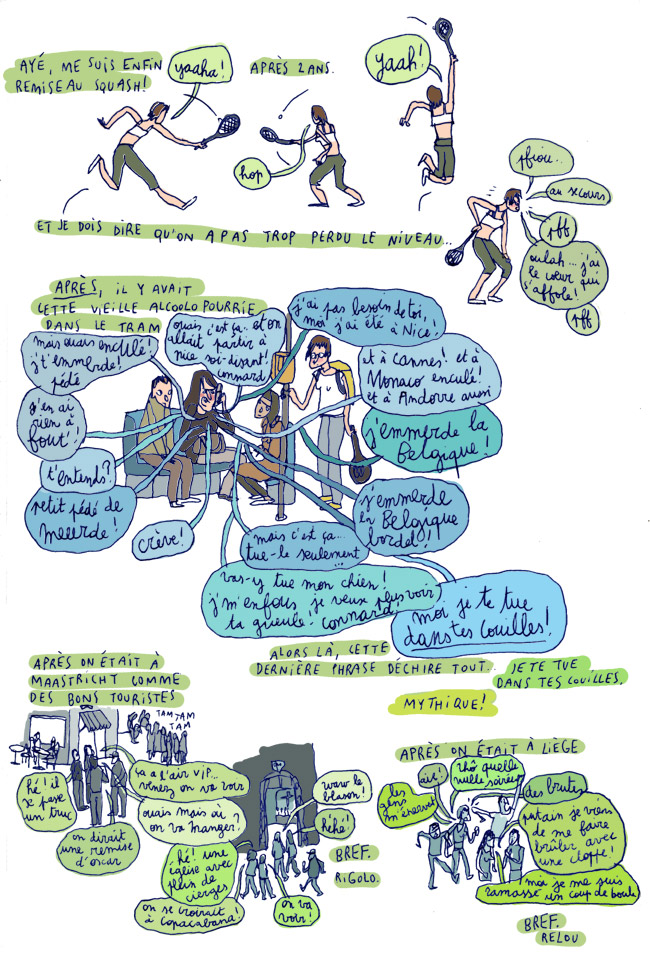 AYÉ, ME SUIS ENFIN
REMISE AU SQUASH!
yaaha!
APRÈS 2 ANS.
hop
yaah!
ET JE DOIS DIRE QU'ON A PAS TROP PERDU LE NIVEAU...
pfiou...
au secours
pff
oulah... j'ai
le cœur qui
s'affole!
pff
APRÈS, IL Y AVAIT
CETTE VIEILLE ALCOOLO POURRIE
DANS LE TRAM
mais ouais enculé!
j't'emmerde!
pédé
ouais c'est ça.. et on
allait partir à
nice soi-disant!
connard
j'ai pas besoin de toi,
moi j'ai été à Nice!
et à Cannes! et à
Monaco enculé!
et à Andorre aussi
j'en ai
rien à
fout'!
j'emmerde la
Belgique!
t'entends?
petit pédé de
meeerde!
crève!
j'emmerde
la Belgique
bordel!
mais c'est ça...
tue-le seulement
vas-y tue mon chien!
j'm'enfous, je veux plus voir
ta gueule! connard!
moi je te tue
dans tes couilles!
ALORS LÀ, CETTE
DERNIÈRE PHRASE DÉCHIRE TOUT.. JE TE TUE
DANS TES COUILLES.
MYTHIQUE!
APRÈS ON ÉTAIT À
MAASTRICHT COMME
DES BONS TOURISTES
TAM TAM
TAM
hé! il
se passe
un truc
ça a l'air VIP...
venez on va voir
ouais mais où
on va manger?
on dirait
une remise
d'oscar
waw le
blason!
héhé!
hé! une
église avec
plein de
cierges
on se croirait
à Copacabana!
on va
voir!
BREF.
RIGOLO.
APRÈS ON ÉTAIT À LIÈGE
les
gens
m'énervent
aïe!
rhô quelle
nulle soirée
des brutes
putain je viens
de me faire
brûler avec
une cloppe!
moi je me suis
ramassé un coup de boule
BREF.
RELOU